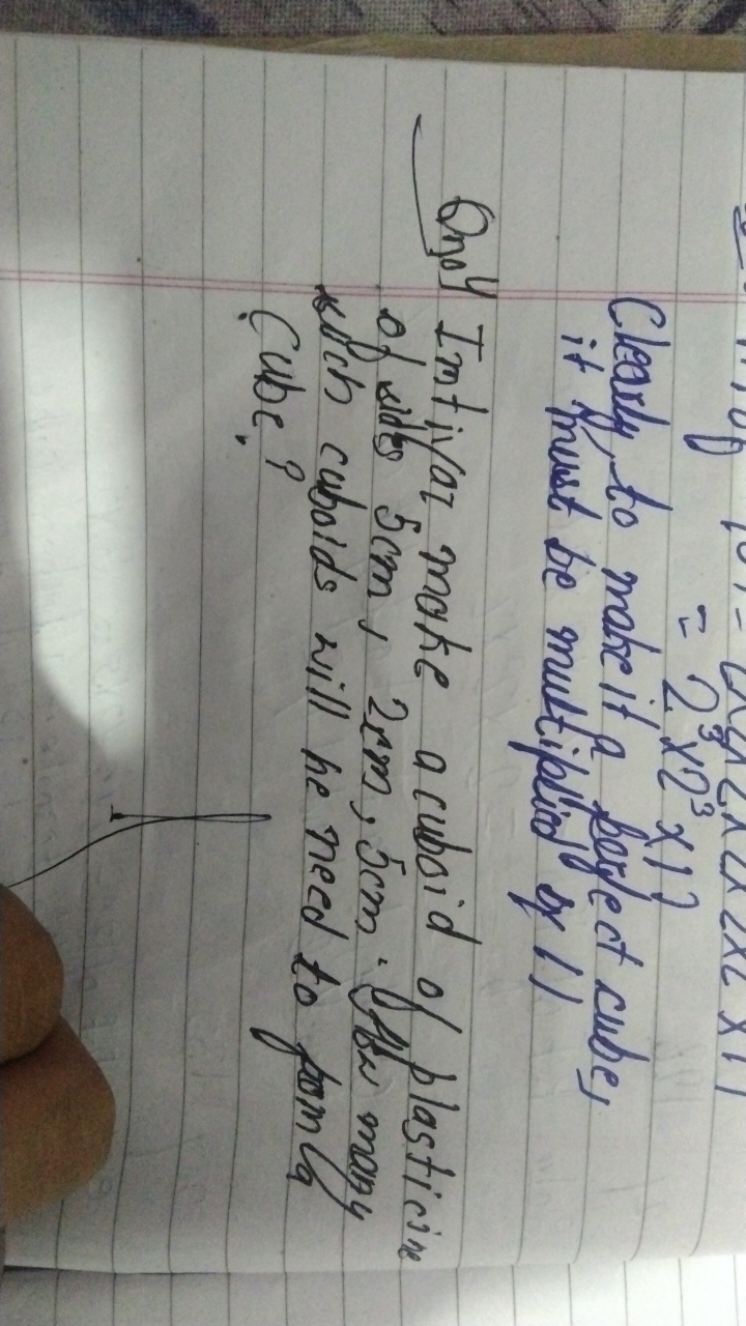 = 2³ x 2³ x 1?
Clearly, to make it a perfect cube,
it must be multiplied by 11
Qno4 Imtiyaz make a cuboid of plasticine
of sides 5cm, 2cm, 5cm. How many
such cuboids will he need to form a
Cube?